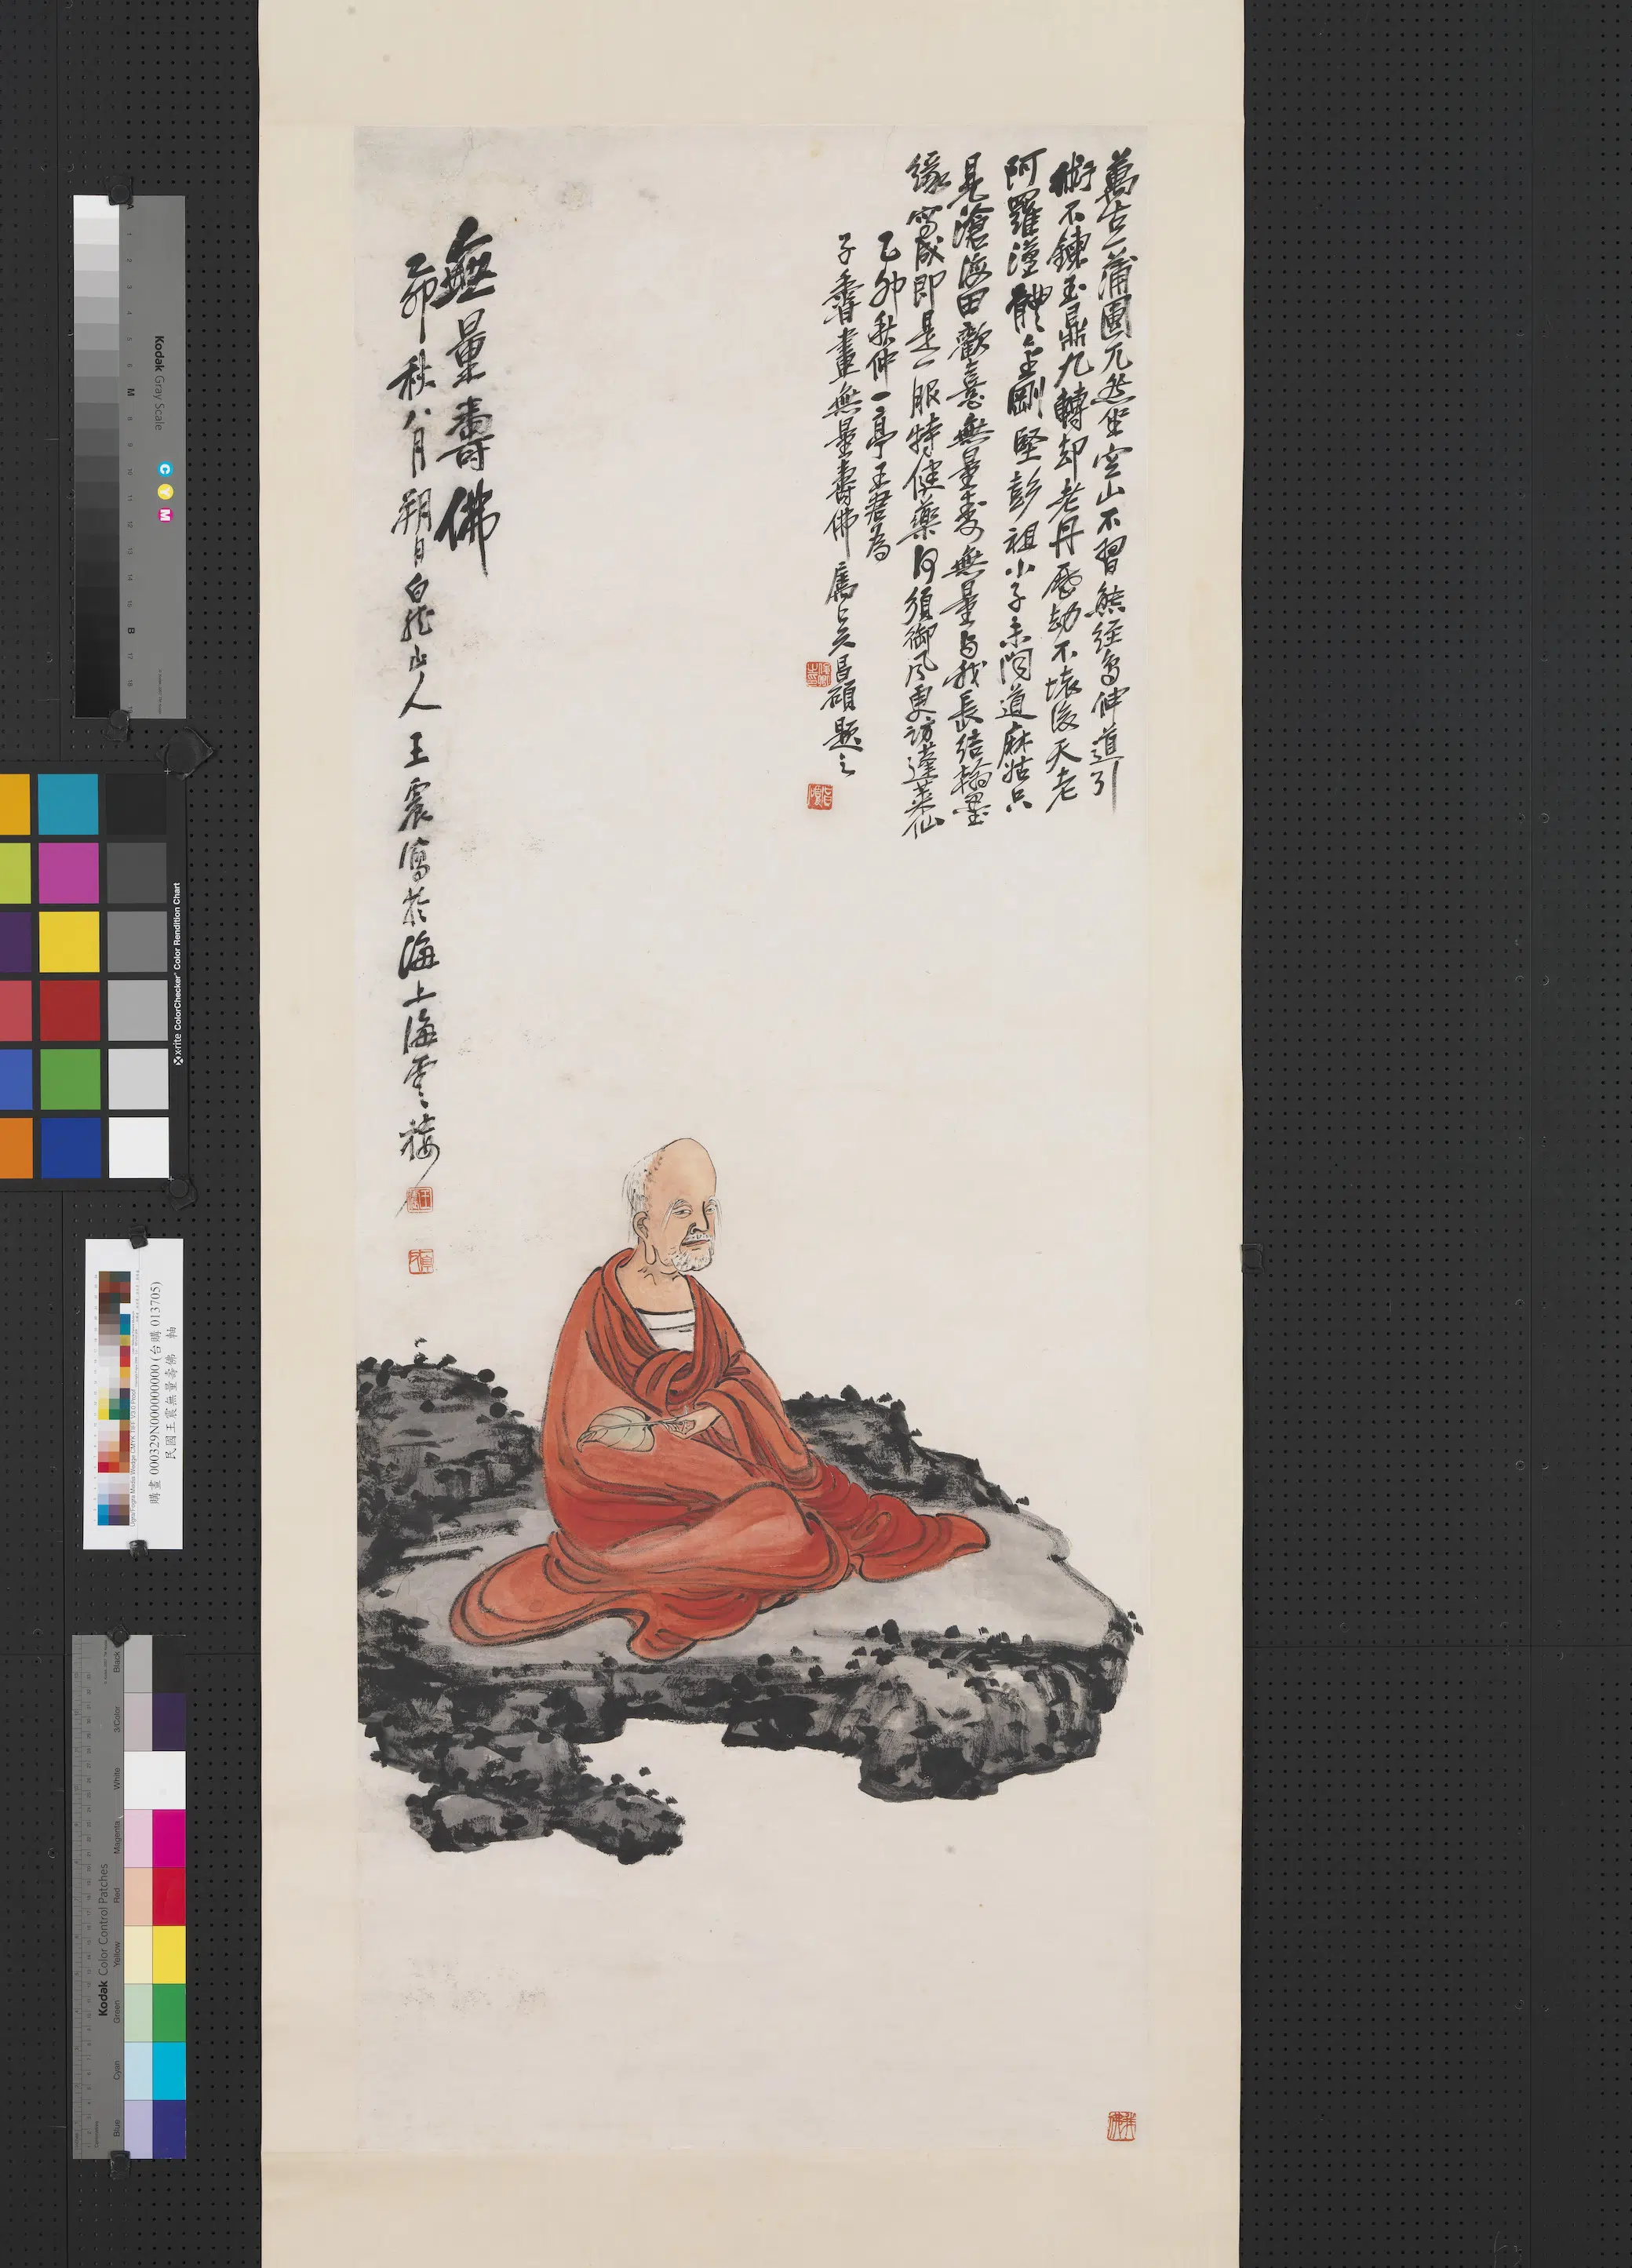 萬古一蒲團兀然坐空山不習熊經鳥伸道引
術不鍊玉鼎九轉却老丹歷劫不壞後天老
阿羅漢體金剛堅彭祖小子未聞道麻姑只
見滄海田歡喜無量壽無量與我長結翰墨
緣寫成即是一服特健藥何須御風更訪蓬萊仙
乙卯秋仲一亭王君為
子香畫無量壽佛屬吳昌碩題之
無量壽佛
乙卯秋八月朔日白龍山人王震寫於海上海雲樓
Kodak Gray Scale
C Y M
A 1 2 3 4 5 6 M 8 9 10 11 12 13 14 15 B 17 18
x-rite ColorChecker Color Rendition Chart
購畫 000329N000000000 (台購 013705)
民國王震無量壽佛 軸
Kodak Color Control Patches
Blue Cyan Green Yellow Red Magenta White 3/Color Black